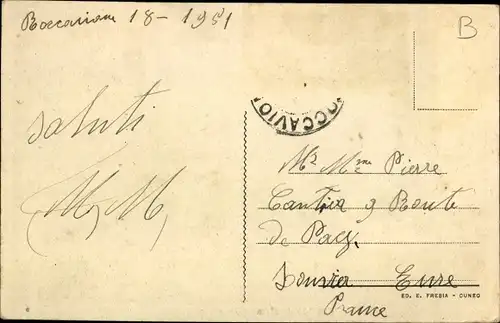 18 - 1951
B
saluti
M, M,
OCCAVIO
Mr Mme Pierre
9 Route
de Pacy
Eure
France
ED. E. FRESIA - CUNEO